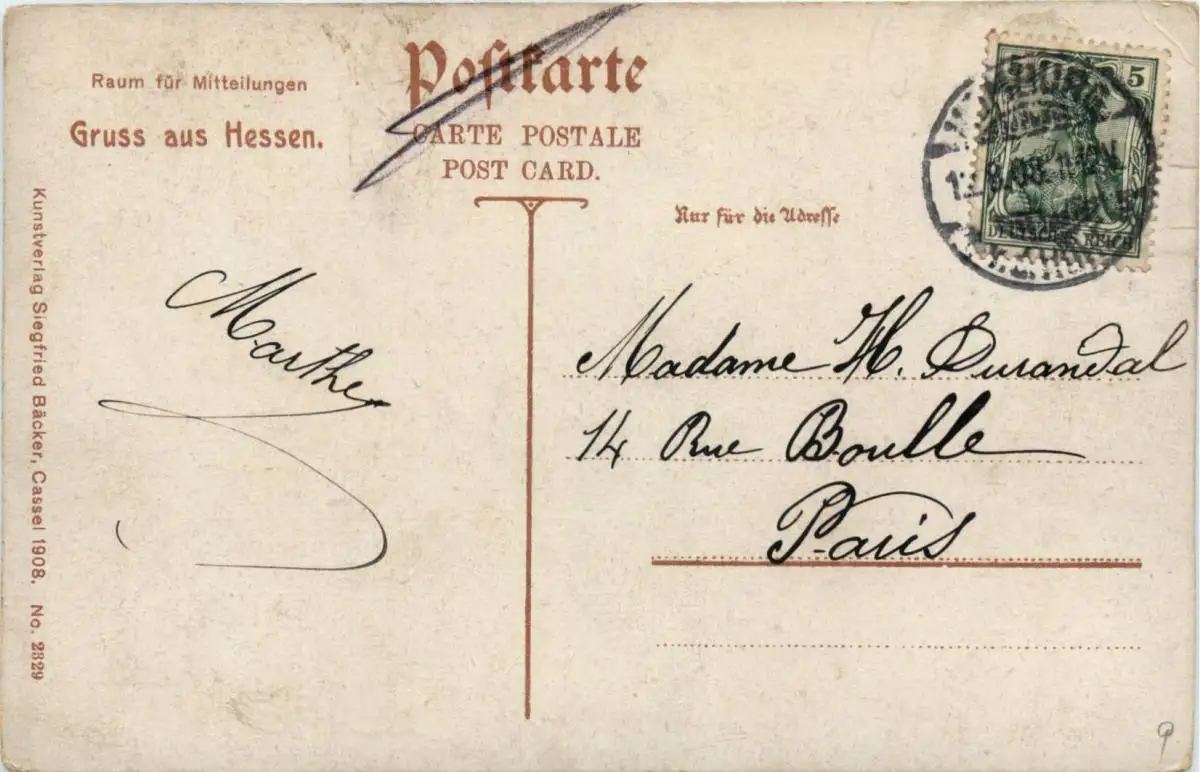 Raum für Mitteilungen
Gruss aus Hessen.
Postkarte
CARTE POSTALE
POST CARD.
Nur für die Adresse
5 5
DEUTSCHES REICH
Marthe
Madame H. Durandal
14 Rue Boulle
Paris
Kunstverlag Siegfried Bäcker, Cassel 1908. No. 2329